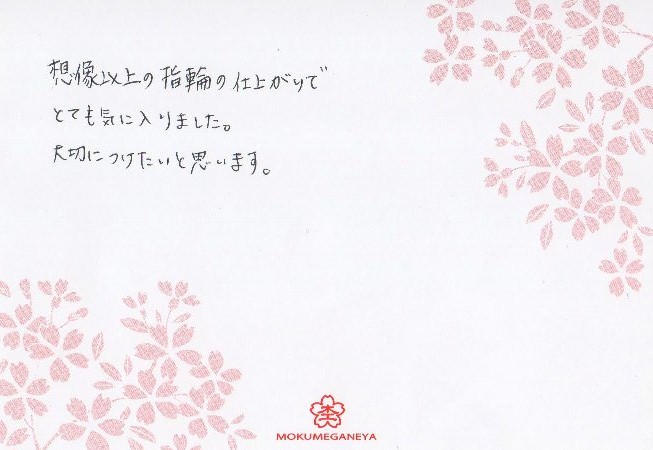 想像以上の指輪の仕上がりで
とても気に入りました。
大切につけたいと思います。
MOKUMEGANEYA